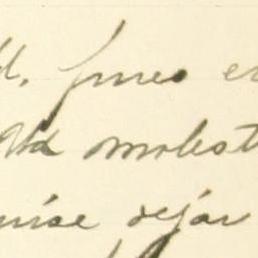 d. pues e
Ud molest
uise dejar